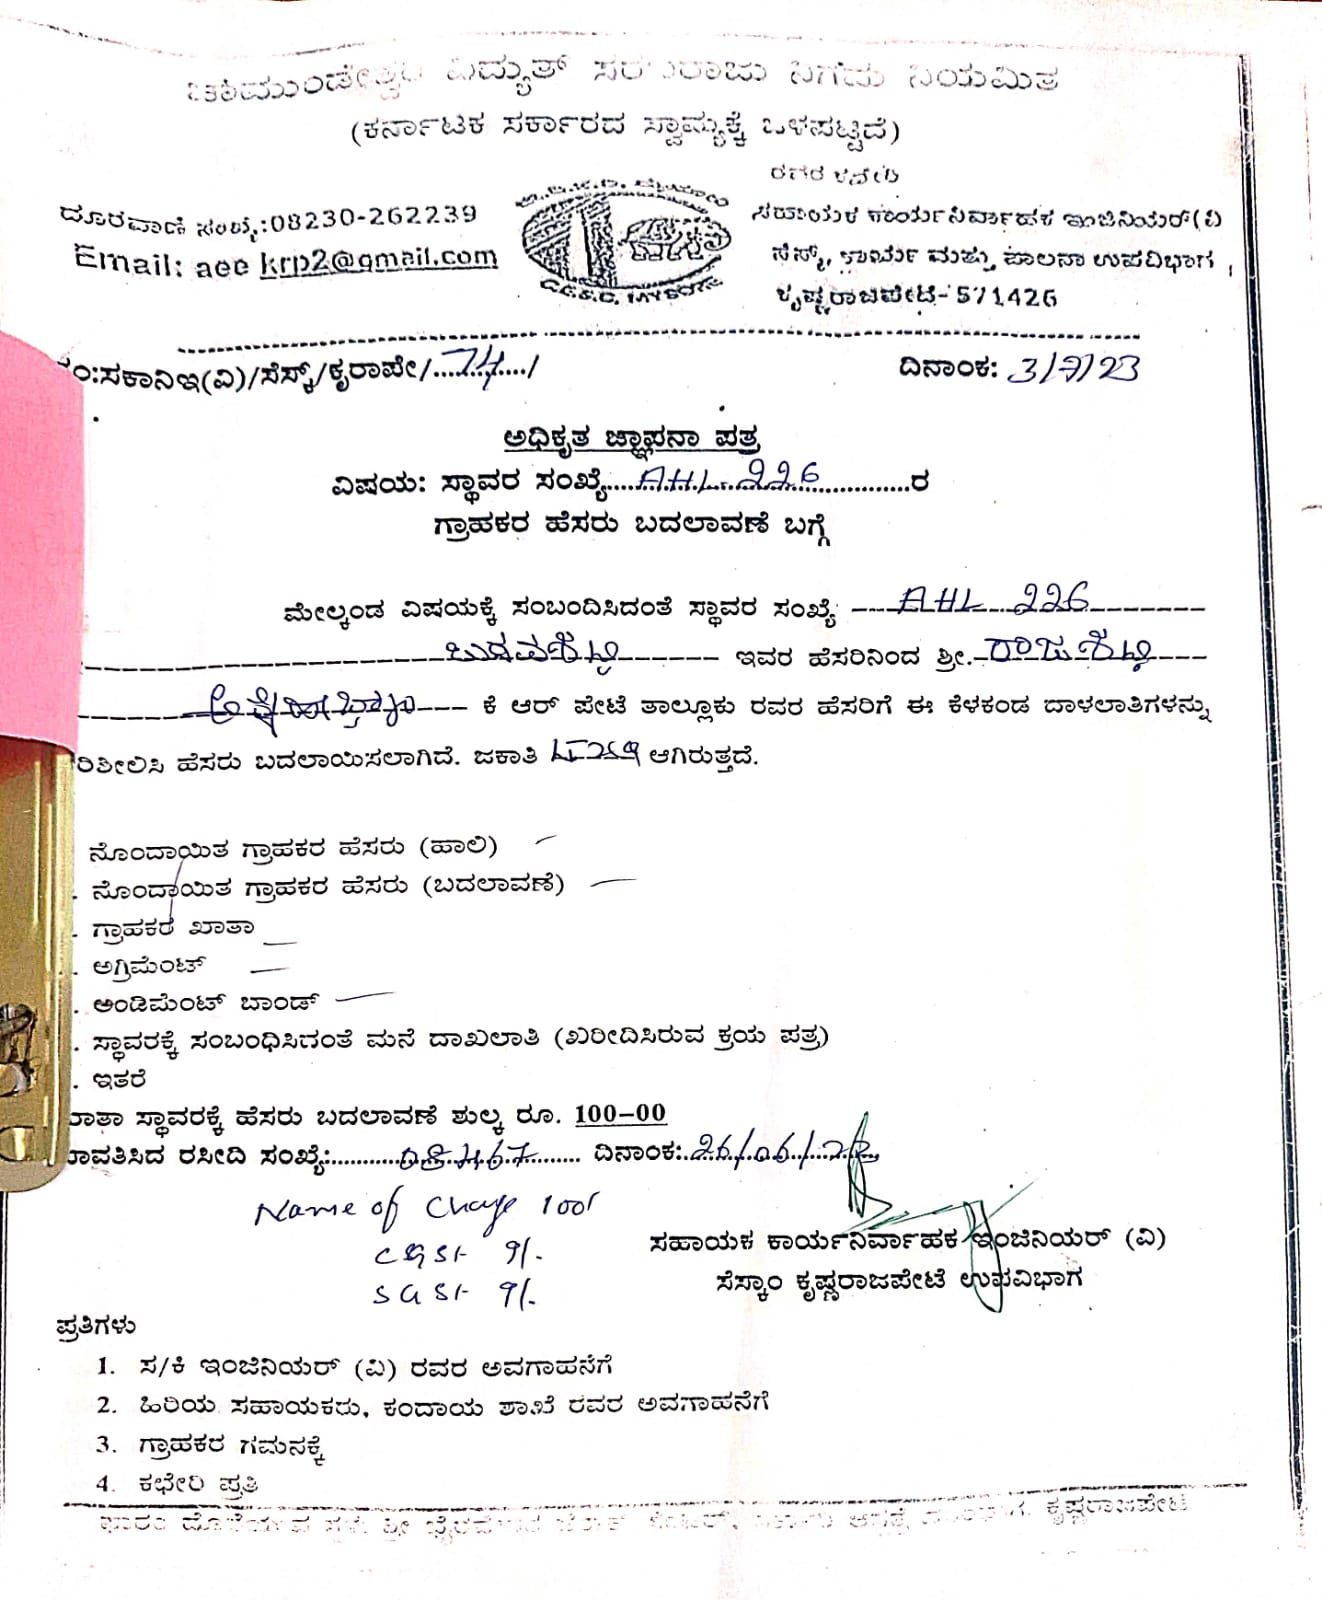 ವಿದ್ಯುತ್ ಸರಬರಾಜು ನಿಗಮ ನಿಯಮಿತ
(ಕರ್ನಾಟಕ ಸರ್ಕಾರದ ಸ್ವಾಮ್ಯಕ್ಕೆ ಒಳಪಟ್ಟಿದೆ)
ರವರ ಕಛೇರಿ
ದೂರವಾಣಿ ಸಂಖ್ಯೆ:08230-262239
ಸಹಾಯಕ ಕಾರ್ಯನಿರ್ವಾಹಕ ಇಂಜಿನಿಯರ್(ವಿ
Email: aee krp2@gmail.com
ಸೆಸ್ಕ್, ಕಾರ್ಯ ಮತ್ತು ಪಾಲನಾ ಉಪವಿಭಾಗ,
ಕೃಷ್ಣರಾಜಪೇಟೆ-571426
C.E.S.C. MYSORE
ಸಂ:ಸಕಾನಿಇ(ವಿ)/ಸೆಸ್ಕ್/ಕೃರಾಪೇ/....74..../ ದಿನಾಂಕ: 3/7/23
ಅಧಿಕೃತ ಜ್ಞಾಪನಾ ಪತ್ರ
ವಿಷಯ: ಸ್ಥಾವರ ಸಂಖ್ಯೆ....AHL 226..............ರ
ಗ್ರಾಹಕರ ಹೆಸರು ಬದಲಾವಣೆ ಬಗ್ಗೆ
ಮೇಲ್ಕಂಡ ವಿಷಯಕ್ಕೆ ಸಂಬಂದಿಸಿದಂತೆ ಸ್ಥಾವರ ಸಂಖ್ಯೆ ---AHL 226-------
ಇವರ ಹೆಸರಿನಿಂದ ಶ್ರೀ.-ರಾಜಶೆಟ್ಟಿ---
ಕೆ ಆರ್ ಪೇಟೆ ತಾಲ್ಲೂಕು ರವರ ಹೆಸರಿಗೆ ಈ ಕೆಳಕಂಡ ದಾಳಲಾತಿಗಳನ್ನು
ರಿಶೀಲಿಸಿ ಹೆಸರು ಬದಲಾಯಿಸಲಾಗಿದೆ. ಜಕಾತಿ ಆಗಿರುತ್ತದೆ.
ನೊಂದಾಯಿತ ಗ್ರಾಹಕರ ಹೆಸರು (ಹಾಲಿ)
. ನೊಂದಾಯಿತ ಗ್ರಾಹಕರ ಹೆಸರು (ಬದಲಾವಣೆ)
. ಗ್ರಾಹಕರ ಖಾತಾ
. ಅಗ್ರಿಮೆಂಟ್
. ಅಂಡಿಮೆಂಟ್ ಬಾಂಡ್
. ಸ್ಥಾವರಕ್ಕೆ ಸಂಬಂಧಿಸಿದಂತೆ ಮನೆ ದಾಖಲಾತಿ (ಖರೀದಿಸಿರುವ ಕ್ರಯ ಪತ್ರ)
. ಇತರೆ
ಖಾತಾ ಸ್ಥಾವರಕ್ಕೆ ಹೆಸರು ಬದಲಾವಣೆ ಶುಲ್ಕ ರೂ. 100-00
ಪಾವತಿಸಿದ ರಸೀದಿ ಸಂಖ್ಯೆ:.......... ದಿನಾಂಕ:.26/06/23
Name of Change 100/
CGST 9/-
SGST 9/-
ಸಹಾಯಕ ಕಾರ್ಯನಿರ್ವಾಹಕ ಇಂಜಿನಿಯರ್ (ವಿ)
ಸೆಸ್ಕಾಂ ಕೃಷ್ಣರಾಜಪೇಟೆ ಉಪವಿಭಾಗ
ಪ್ರತಿಗಳು
1. ಸ/ಕಿ ಇಂಜಿನಿಯರ್ (ವಿ) ರವರ ಅವಗಾಹನೆಗೆ
2. ಹಿರಿಯ ಸಹಾಯಕರು, ಕಂದಾಯ ಶಾಖೆ ರವರ ಅವಗಾಹನೆಗೆ
3. ಗ್ರಾಹಕರ ಗಮನಕ್ಕೆ
4. ಕಛೇರಿ ಪ್ರತಿ
ಕೃಷ್ಣರಾಜಪೇಟೆ